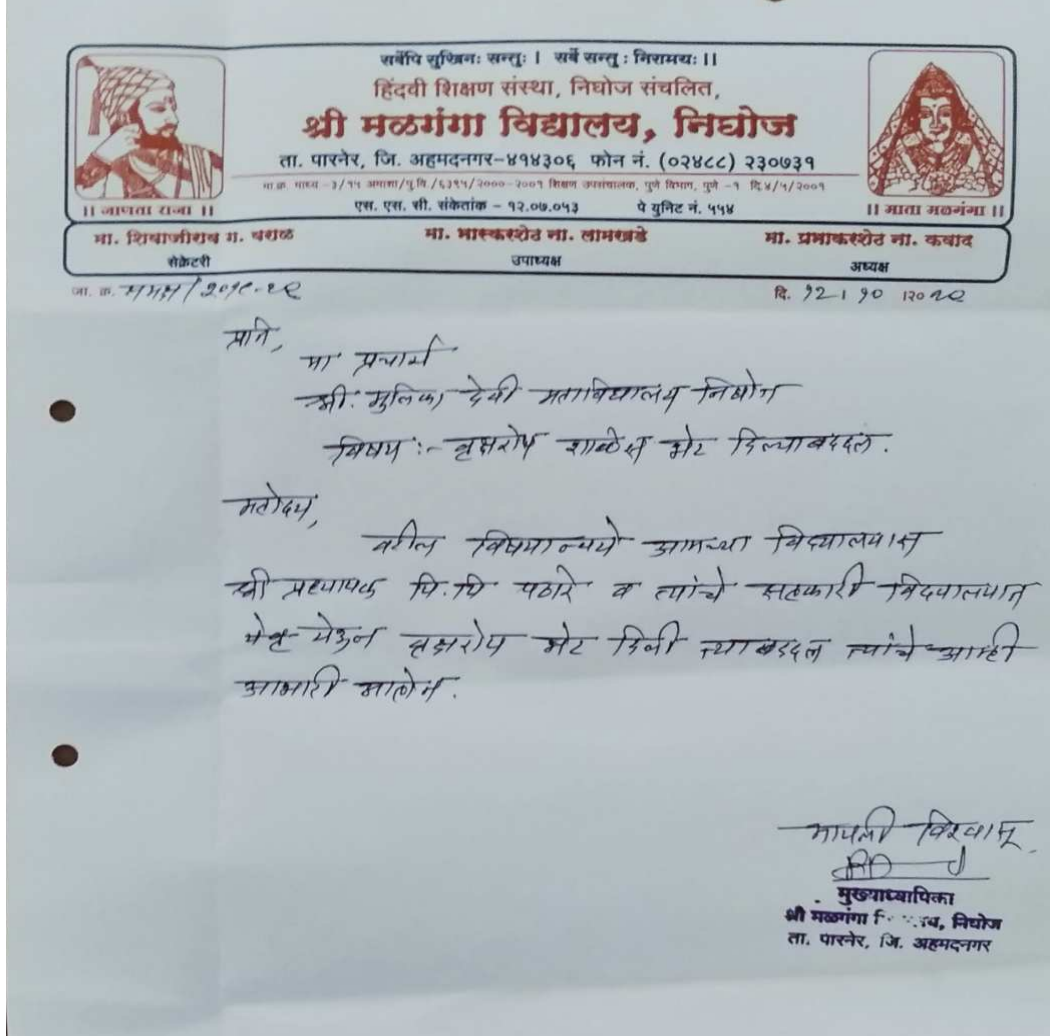 सर्वेपि सुखिनः सन्तुः। सर्वे सन्तु : निरामयः।।
हिंदवी शिक्षण संस्था, निघोज संचलित,
श्री मळगंगा विद्यालय, निघोज
ता. पारनेर, जि. अहमदनगर-४१४३०६ फोन नं. (०२४८८) २३०७३१
मा.क्र. माध्य -३/१५ अमाशा/पु.वि./६३९५/२०००-२००१ शिक्षण उपसंचालक, पुणे विभाग, पुणे -१ दि.४/५/२००१
एस. एस. सी. संकेतांक - १२.०७.०५३ पे युनिट नं. ५५४
।। जाणता राजा ।। ।। माता मळगंगा ।।
मा. शिवाजीराव ग. वराळ मा. भास्करशेठ ना. लामखडे मा. प्रभाकरशेठ ना. कवाद
सेक्रेटरी उपाध्यक्ष अध्यक्ष
जा. क्र. /२०१९-२० दि. १२।१०।२०
प्रति,
मा प्राचार्य
श्री. मुलिका देवी महाविद्यालय निघोज
विषय :- वृक्षरोप शाळेस भेट दिल्याबद्दल.
महोदय,
वरील विषयान्वये आमच्या विद्यालयास
श्री प्राध्यापक पि.पि पठारे व त्यांचे सहकारी विद्यालयात
येऊन वृक्षरोप भेट दिली त्याबद्दल त्यांचे आम्ही
आभारी आहोत.
आपली विश्वासू
मुख्याध्यापिका
श्री मळगंगा निघोज
ता. पारनेर, जि. अहमदनगर